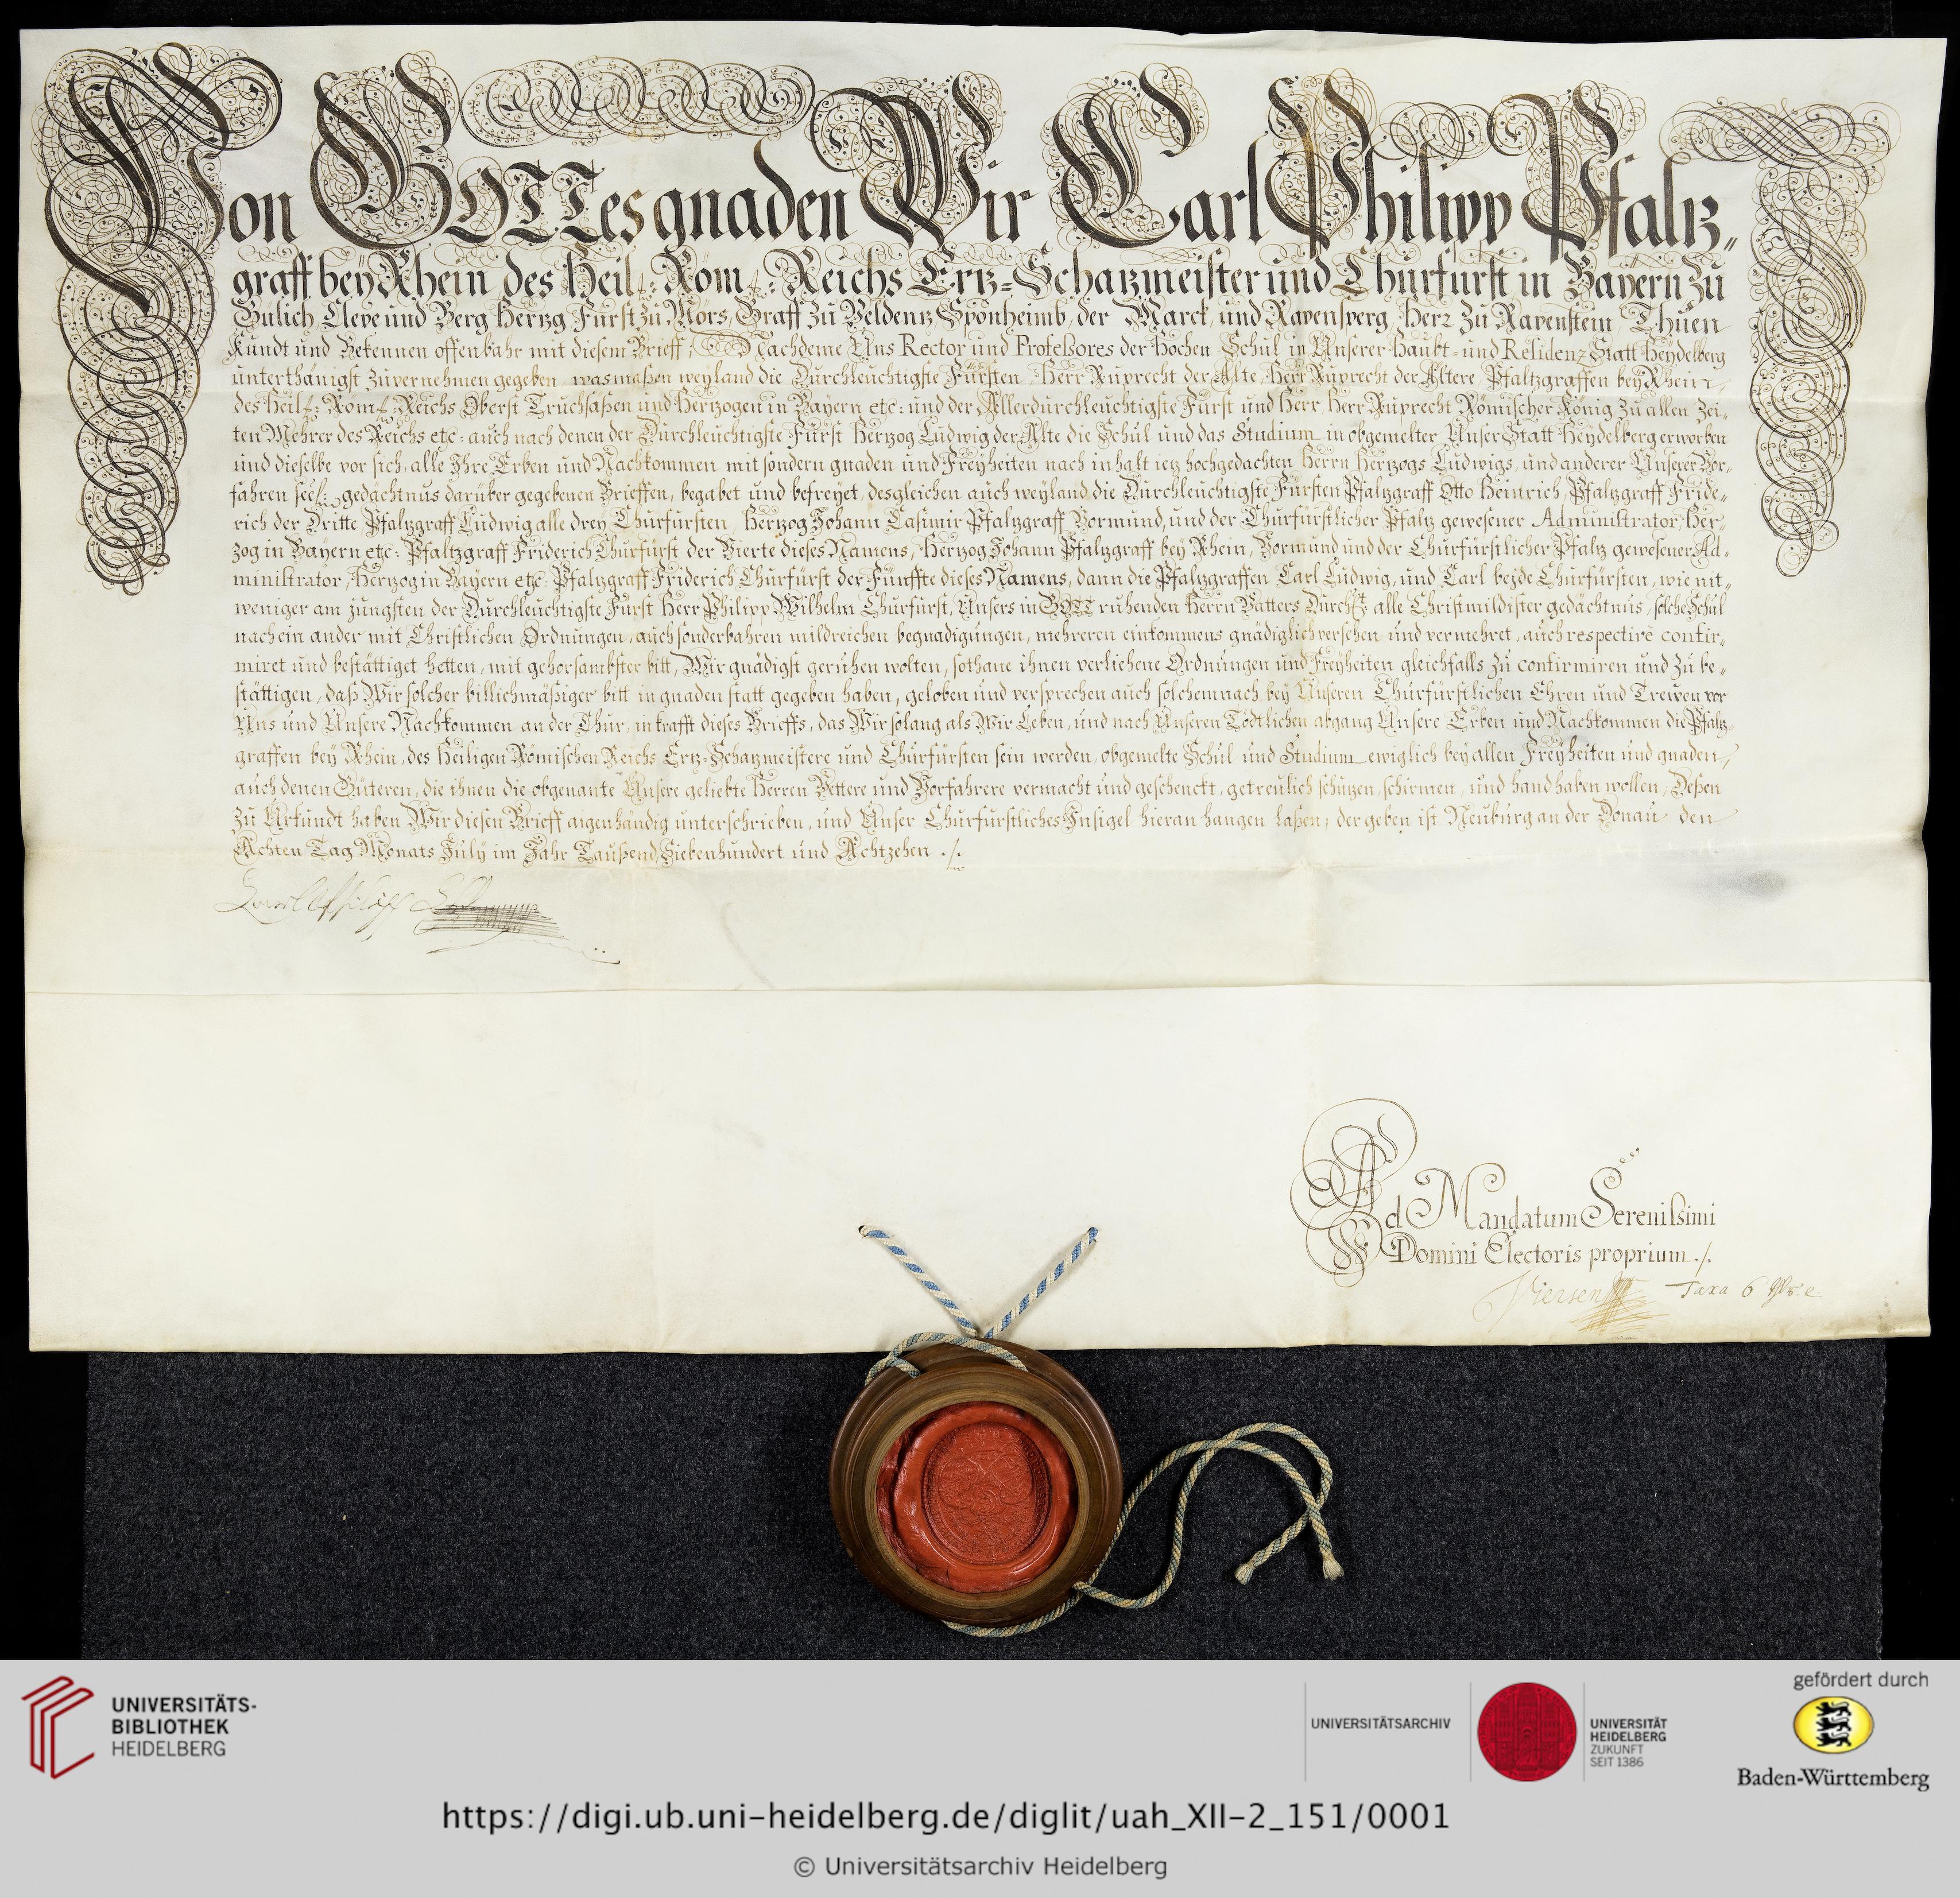 Von GOTTes gnaden Wir Carl Philipp Pfaltz„
graff bey Rhein des Heil: Röm: Reichs Ertz-Schatzmeister und Churfürst in Bayern zu
Gülich, Cleve und Berg Hertzog, Fürst zu Mörs, Graff zu Veldentz Sponheimb, der Marck, und Ravensperg, Herr zu Ravenstein, Thuen
Kundt und Bekennen offenbahr mit diesem Brieff; Nachdeme Uns Rector und Profeßores der Hochen Schul in Unserer Haubt- und Residenz Statt Heydelberg
unterthänigst zuvernehmen gegeben, wasmaßen weyland die Durchleuchtigste Fürsten, Herr Ruprecht der Alte, Herr Ruprecht der Ältere, Pfaltzgraffen bey Rhein,
des Heil: Röm: Reichs Oberst Truchsaßen und Hertzogen in Bayern etc: und der Allerdurchleuchtigste Fürst und Herr, Herr Ruprecht Römischer König zu allen Zei-
ten Mehrer des Reichs etc: auch nach denen der Durchleuchtigste Fürst Hertzog Ludwig der Alte die Schul und das Studium in obgemelter Unser Statt Heydelberg erworben
und dieselbe vor sich, alle Ihre Erben und Nachkommen mit sondern gnaden und Freyheiten nach inhalt ietz hochgedachten Herrn Hertzogs Ludwigs, und anderer Unserer Vor-
fahren seel: gedächtnus darüber gegebenen Brieffen, begabet und befreyet, desgleichen auch weyland die Durchleuchtigste Fürsten Pfaltzgraff Otto Heinrich, Pfaltzgraff Fride-
rich der Dritte Pfaltzgraff Ludwig alle drey Churfürsten, Hertzog Johann Casimir Pfaltzgraff Vormund, und der Churfürstlicher Pfaltz gewesener Administrator, Her-
zog in Bayern etc: Pfaltzgraff Friderich Churfürst der Vierte dieses Namens, Hertzog Johann Pfaltzgraff bey Rhein, Vormund und der Churfürstlicher Pfaltz gewesener Ad-
ministrator, Hertzog in Bayern etc: Pfaltzgraff Friderich Churfürst der Fünffte dieses Namens, dann die Pfaltzgraffen Carl Ludwig, und Carl beyde Churfürsten, wie nit„
weniger am jüngsten der Durchleuchtigste Fürst Herr Philipp Wilhelm Churfürst, Unsers in GOTT ruhenden Herrn Vatters Durchlt alle Christmildister gedächtnus, solche Schul
nach ein ander mit Christlichen Ordnungen, auch sonderbahren mildreichen begnadigungen, mehreren einkommens gnädiglich versehen und vermehret, auch respectivè confir-
miret und bestättiget hetten, mit gehorsambster bitt, Wir gnädigst geruhen wolten, sothane ihnen verliehene Ordnungen und Freyheiten gleichfalls zu confirmiren und zu be-
stättigen, daß Wir solcher billichmäßiger bitt in gnaden statt gegeben haben, geloben und versprechen auch solchemnach bey Unseren Churfürstlichen Ehren und Trewen vor
Uns und Unsere Nachkommen an der Chur, in krafft dieses Brieffs, das Wir solang als Wir Leben, und nach Unseren Tödtlichen abgang Unsere Erben und Nachkommen die Pfaltz
graffen bey Rhein, des Heiligen Römischen Reichs Ertz-Schatzmeistere und Churfürsten sein werden, obgemelte Schul und Studium ewiglich bey allen Freyheiten und gnaden,
auch denen Güteren, die ihnen die obgenante Unsere geliebte Herren Vettere und Vorfahrere vermacht und geschenckt, getreulich schützen, schirmen, und handhaben wollen, Deßen
zu Urkundt haben Wir diesen Brieff aigenhändig unterschrieben, und Unser Churfürstliches Insigel hieran hangen laßen; der geben ist Neuburg an der Donau den
Achten Tag Monats July im Jahr Taußend Siebenhundert und Achtzehen ./.
Carl Philipp
Ad Mandatum Serenißimi
Domini Electoris proprium ./.
Taxa 6
UNIVERSITÄTS-
BIBLIOTHEK
HEIDELBERG
UNIVERSITÄTSARCHIV
UNIVERSITÄT
HEIDELBERG
ZUKUNFT
SEIT 1386
gefördert durch
Baden-Württemberg
https://digi.ub.uni-heidelberg.de/diglit/uah_XII-2_151/0001
© Universitätsarchiv Heidelberg